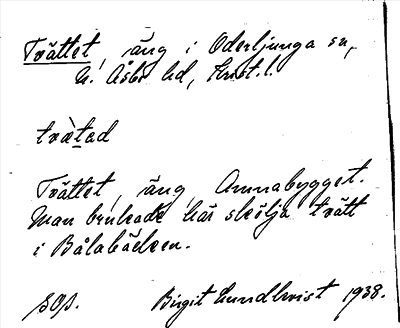 Tvättet, äng i Oderljunga sn,
N. Åsbo hd, Krist.l.
tvätad
Tvättet, äng, Annabygget.
Man brukade här skölja tvätt
i Bålabäcken.
Birgit Lundkvist 1938.